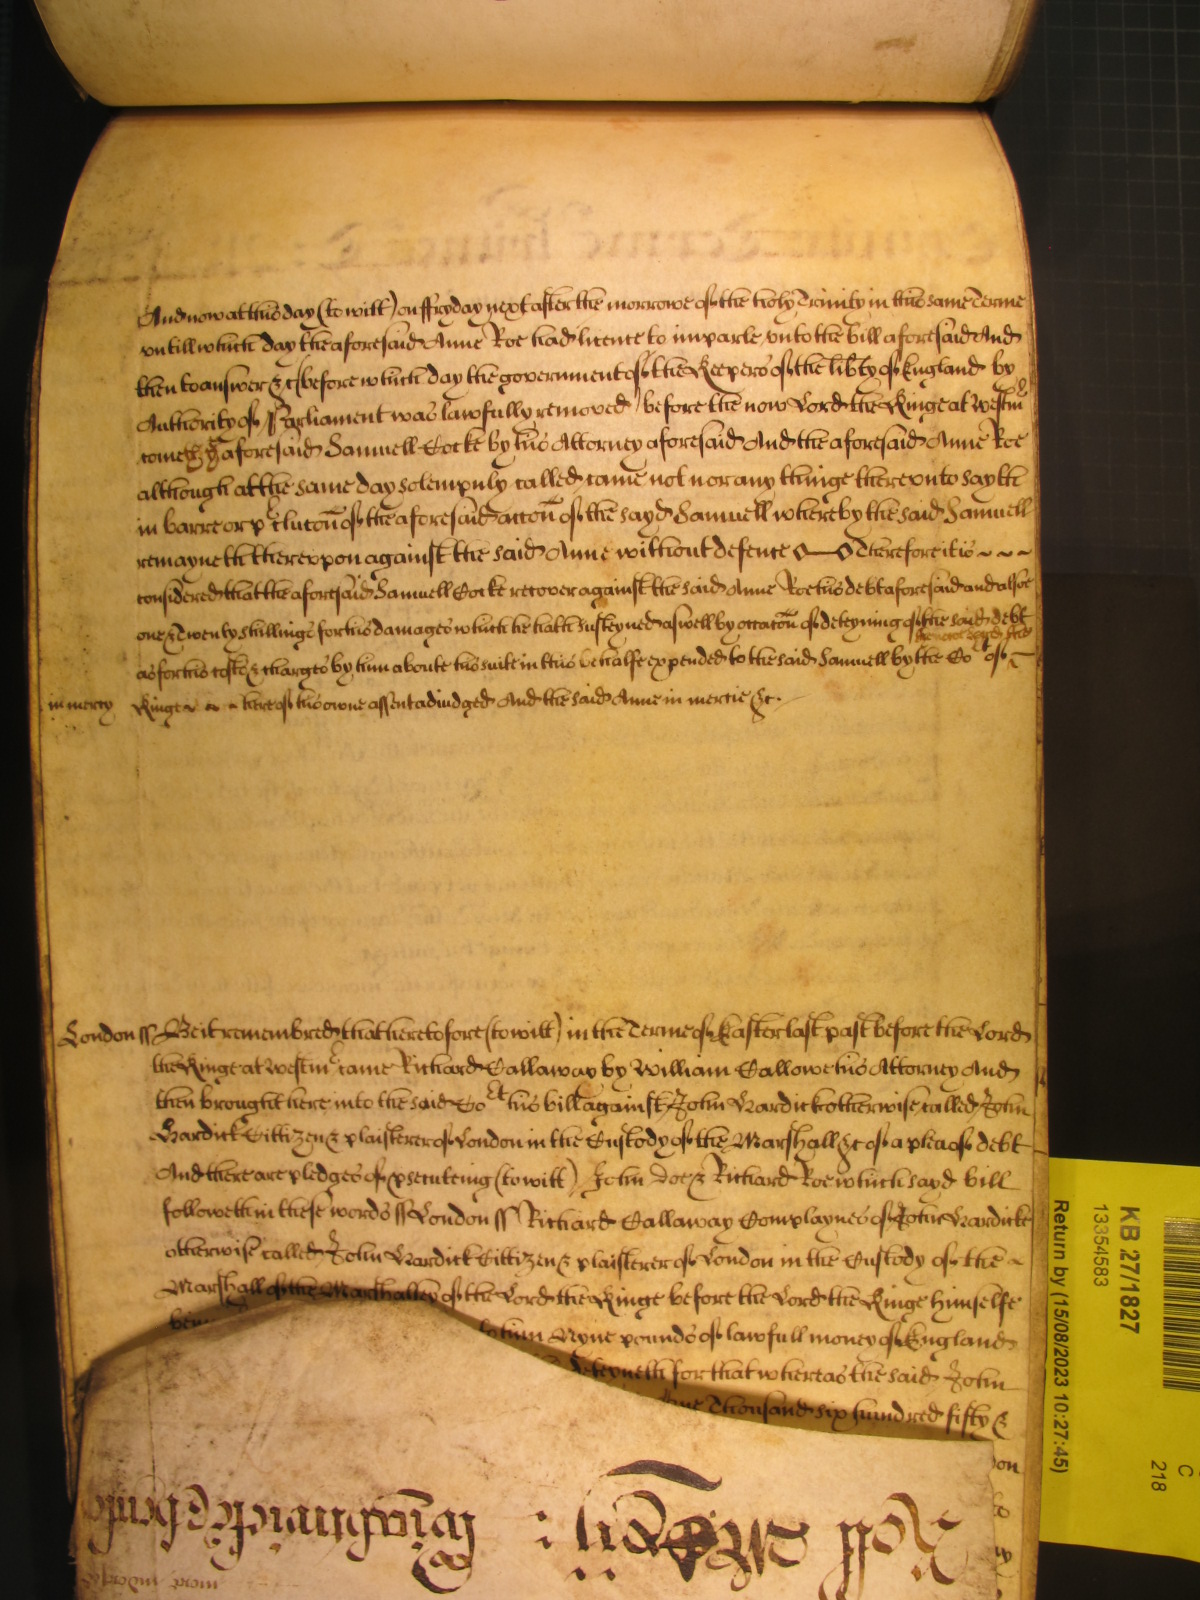 And now at this day (to witt) on ffryday next after the morrowe of the holy Trinity in this same Terme
untill which day the aforesaid Anne Roe had licence to imparle unto the bill aforesaid And
then to answer &c (before which day the government of the Keepers of the libty of England by
Authority of Parliament was lawfully removed) before the now Lord the Kinge at Westm
come aforesaid Samuell Cocke by his Attorney aforesaid And the aforesaid Anne Roe
although at the same day solempnly called came not nor any thinge thereunto sayth
in barre or pclucon of the aforesaid accon of the sayd Samuell whereby the said Samuell
remayneth thereupon against the said Anne without defence Therefore it is
considered that the aforesaid Samuell Cocke recover against the said Anne Roe his debt aforesaid and alsoe
one & Twenty shillings for his damages which he hath susteyned aswell by occacon of deteyning of the said debt
as for his costs & charges by him aboute his suite in this behalfe expended to the said Samuell by the Cot of
the now Lord the
in mercy Kinge here of his owne assent adiudged And the said Anne in mercie &c.
London ss Be it remembred that heretofore (to witt) in the Terme of Easter last past before the Lord
the Kinge at Westm came Richard Callaway by William Gallowe his Attorney And
then brought here into the said Cot his bill against John Hardick otherwise called John
Hardick Cittizen & plaisterer of London in the Custody of the Marshall &c of a plea of debt
And there are pledges of psecuteing (to witt) John Doe & Richard Roe which sayd bill
followeth in these words ss London ss Richard Callaway Complaynes of John Hardicke
otherwise called John Hardick Cittizen & plaisterer of London in the Custody of the
Marshall of the Marshalsey of the Lord the Kinge before the Lord the Kinge himselfe
Nyne pounds of lawfull money of England
deteyneth for that whereas the said John
one Thousand six hundred fifty &
KB 27/1827
13354583
Return by (15/08/2023 10:27:45)
C
218